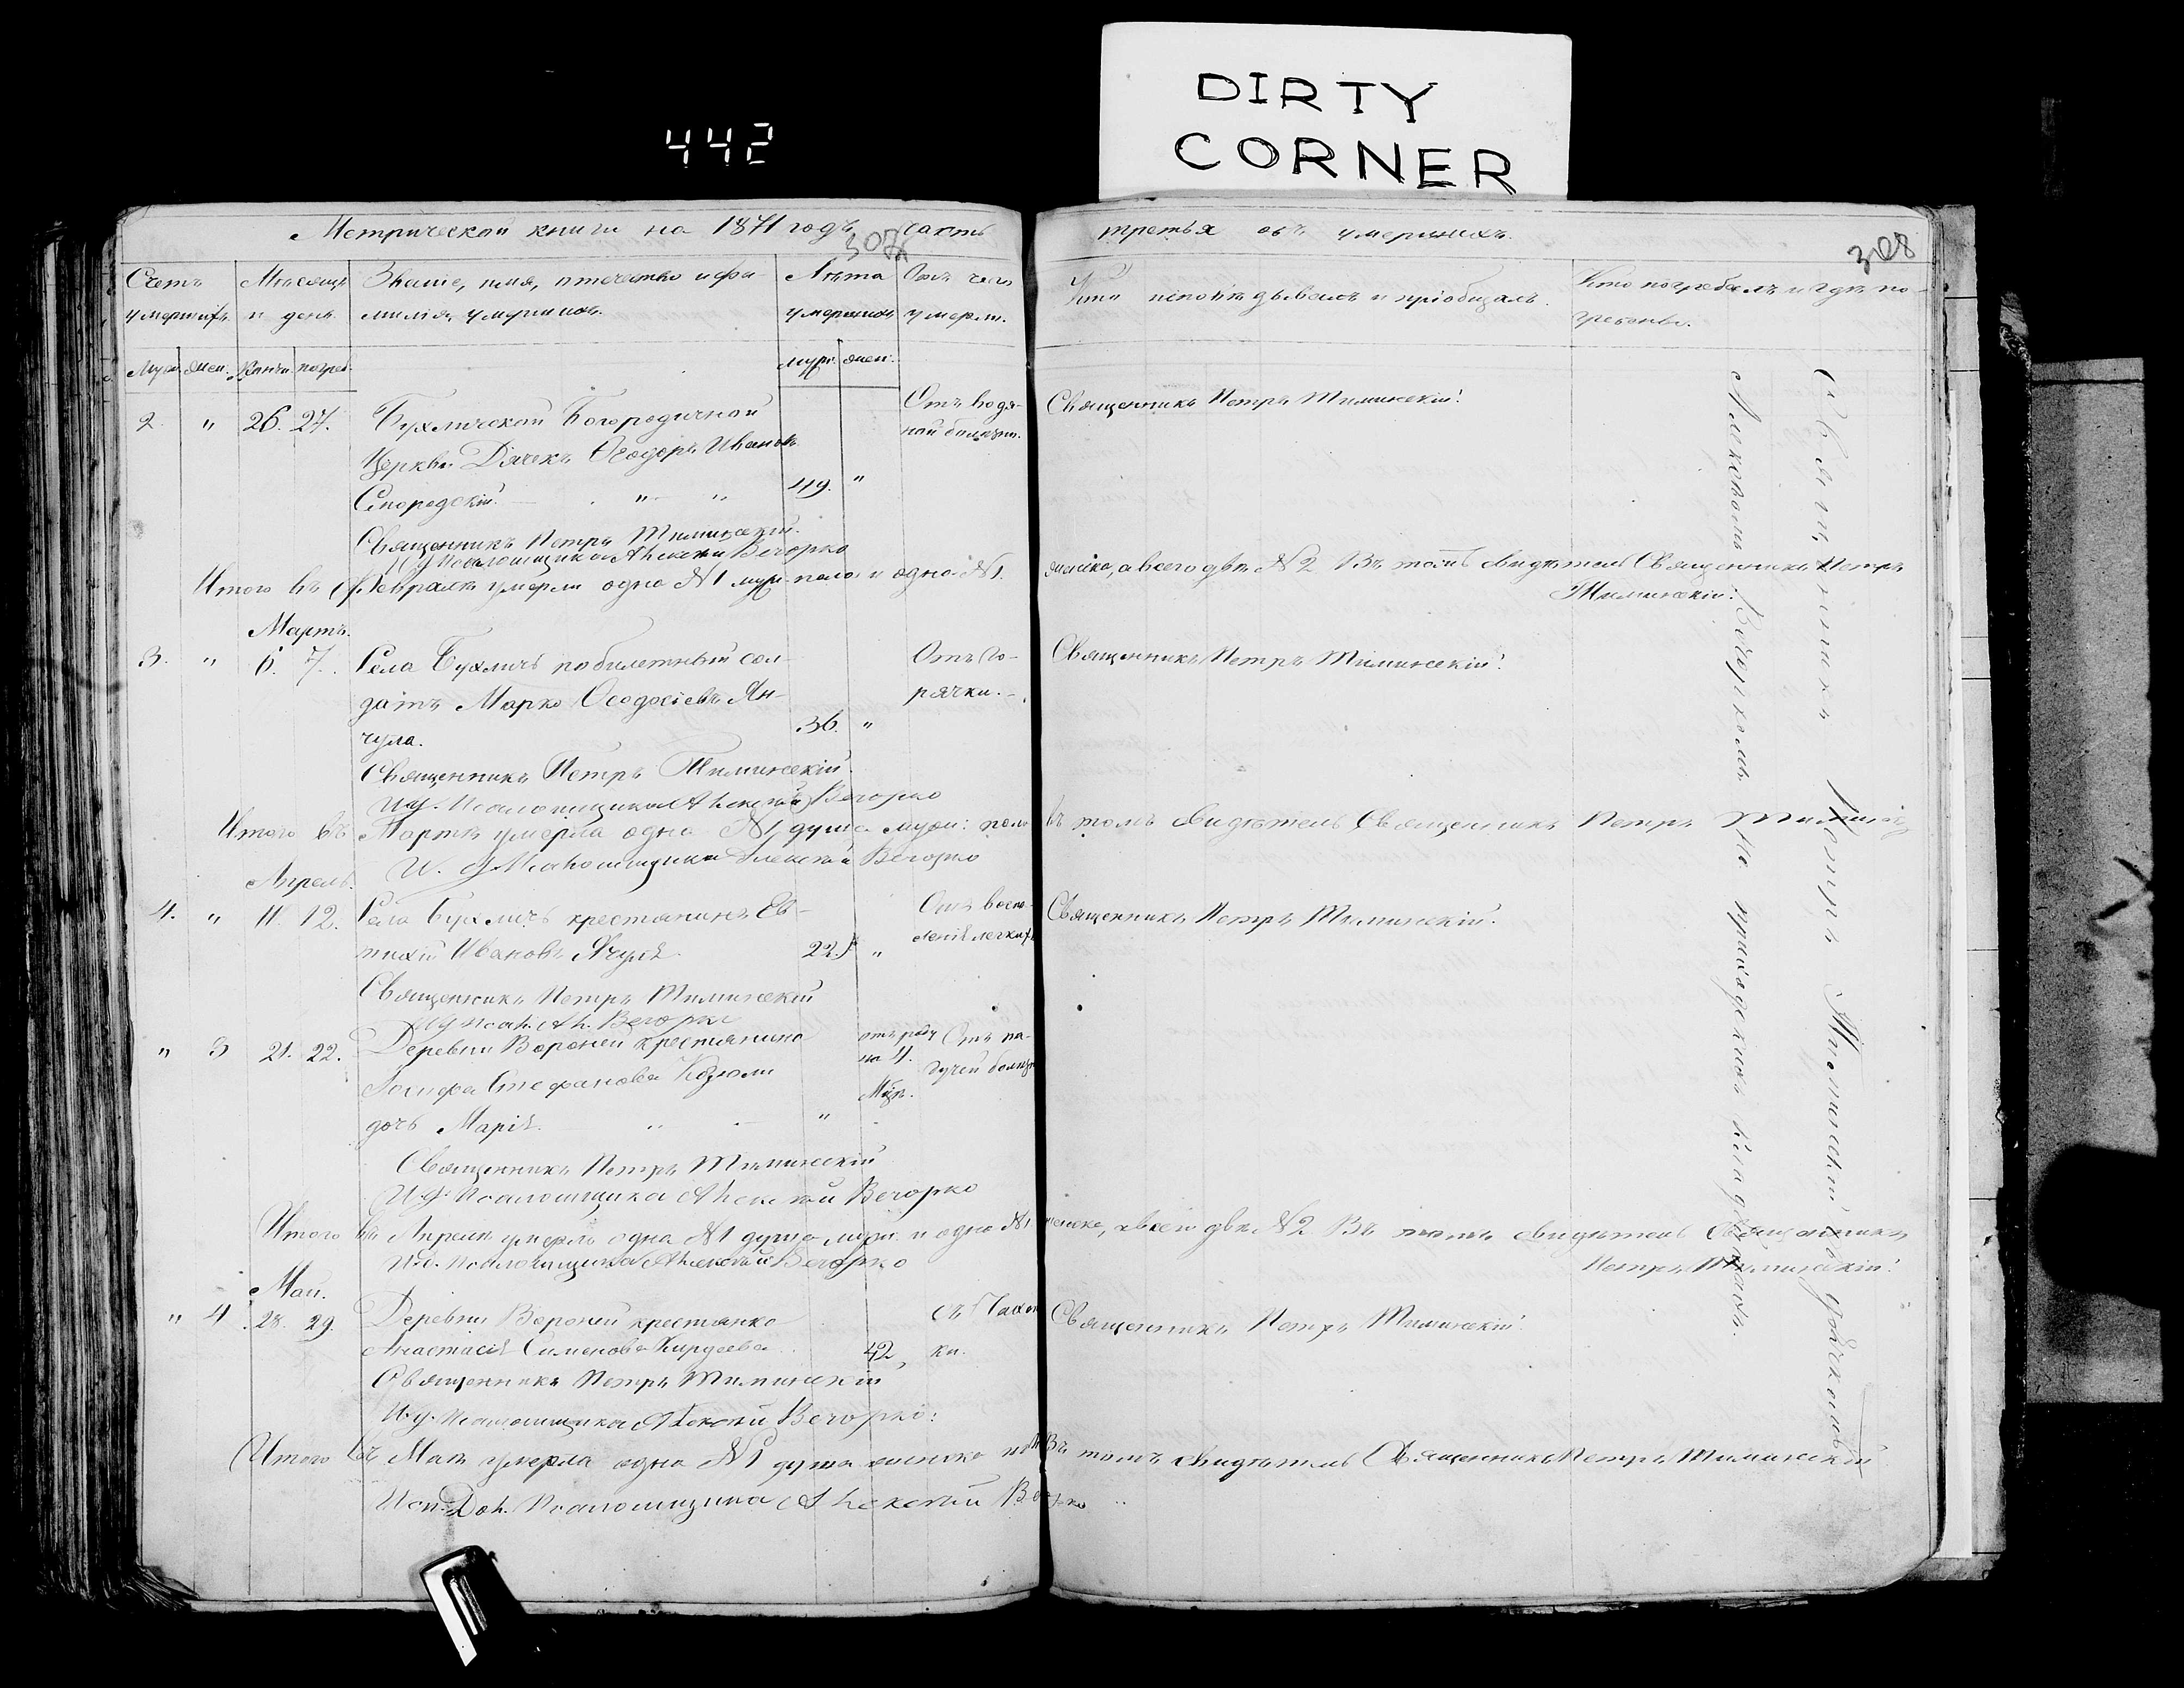 442
DIRTY
CORNER
Метрической книги на 1871 годъ часть третья объ умершихъ.
307
308
Счетъ умершихъ.
Мѣсяцъ и день.
Званіе, имя, отечество и фамилія умершихъ.
Лѣта умершихъ
Отъ чего умерли.
Кто исповѣдывалъ и пріобщалъ.
Кто погребалъ и гдѣ погребены.
Муж. жен. Конч. погреб. муж. жен.
2. " 26. 27. Бухличской Богородичной
Церкви Дячекъ Ѳеодоръ Ивановъ
49. "
Отъ водяной болѣзни.
Священникъ Петръ Тиминскій.
Священникъ Петръ Тиминскій.
Итого въ Февралѣ умерли одна №1 муж. пола и одна №1 женска, а всего двѣ №2 Въ томъ свидѣтель Священникъ Петръ
Тиминскій.
Мартъ.
3. " 6. 7. Села Бухличъ побилетный солдатъ Марко Ѳеодосіевъ Янчула.
36. "
Отъ горячки.
Священникъ Петръ Тиминскій.
Священникъ Петръ Тиминскій.
И.д. Псаломщика Алексѣй Вечорко
Итого въ Мартѣ умерла одна №1 душа муж: пола въ томъ свидѣтель Священникъ Петръ
И. д. Псаломщика Алексѣй Вечорко
Апрель.
4. " 11. 12. Села Бухличъ крестянинъ Евтихій Ивановъ
22. "
Отъ воспаленія легкихъ
Священникъ Петръ Тиминскій.
Священникъ Петръ Тиминскій
И.д. Псал. Ал. Вечорко
" 3 21. 22. Деревни Вороней крестянина
Іосифа Стефанова
дочь Марія.
отъ роду
Отъ падучей болѣзн
Священникъ Петръ Тиминскій
И.д. Псаломщика Алексѣй Вечорко
Итого въ Апрелѣ умерла одна №1 душа муж. и одна №1 женска, а всего двѣ №2 Въ томъ свидѣтель Священникъ
Петръ Тиминскій.
И.д. Псаломщика Алексѣй Вечорко
Май.
" 4 28. 29. Деревни Вороней крестянка
Анастасія Сименова
42,
съ Чахотки.
Священникъ Петръ Тиминскій.
Священникъ Петръ Тиминскій
И.д. Псаломщика Алексѣй Вечорко:
Итого въ Маѣ умерла одна №1 душа женска пол Въ томъ свидѣтель Священникъ Петръ Тиминскій
Исп. Дол. Псаломщика Алексѣй Вечорко
Священникъ Петръ Тиминскій
На приходскомъ кладбищѣ.